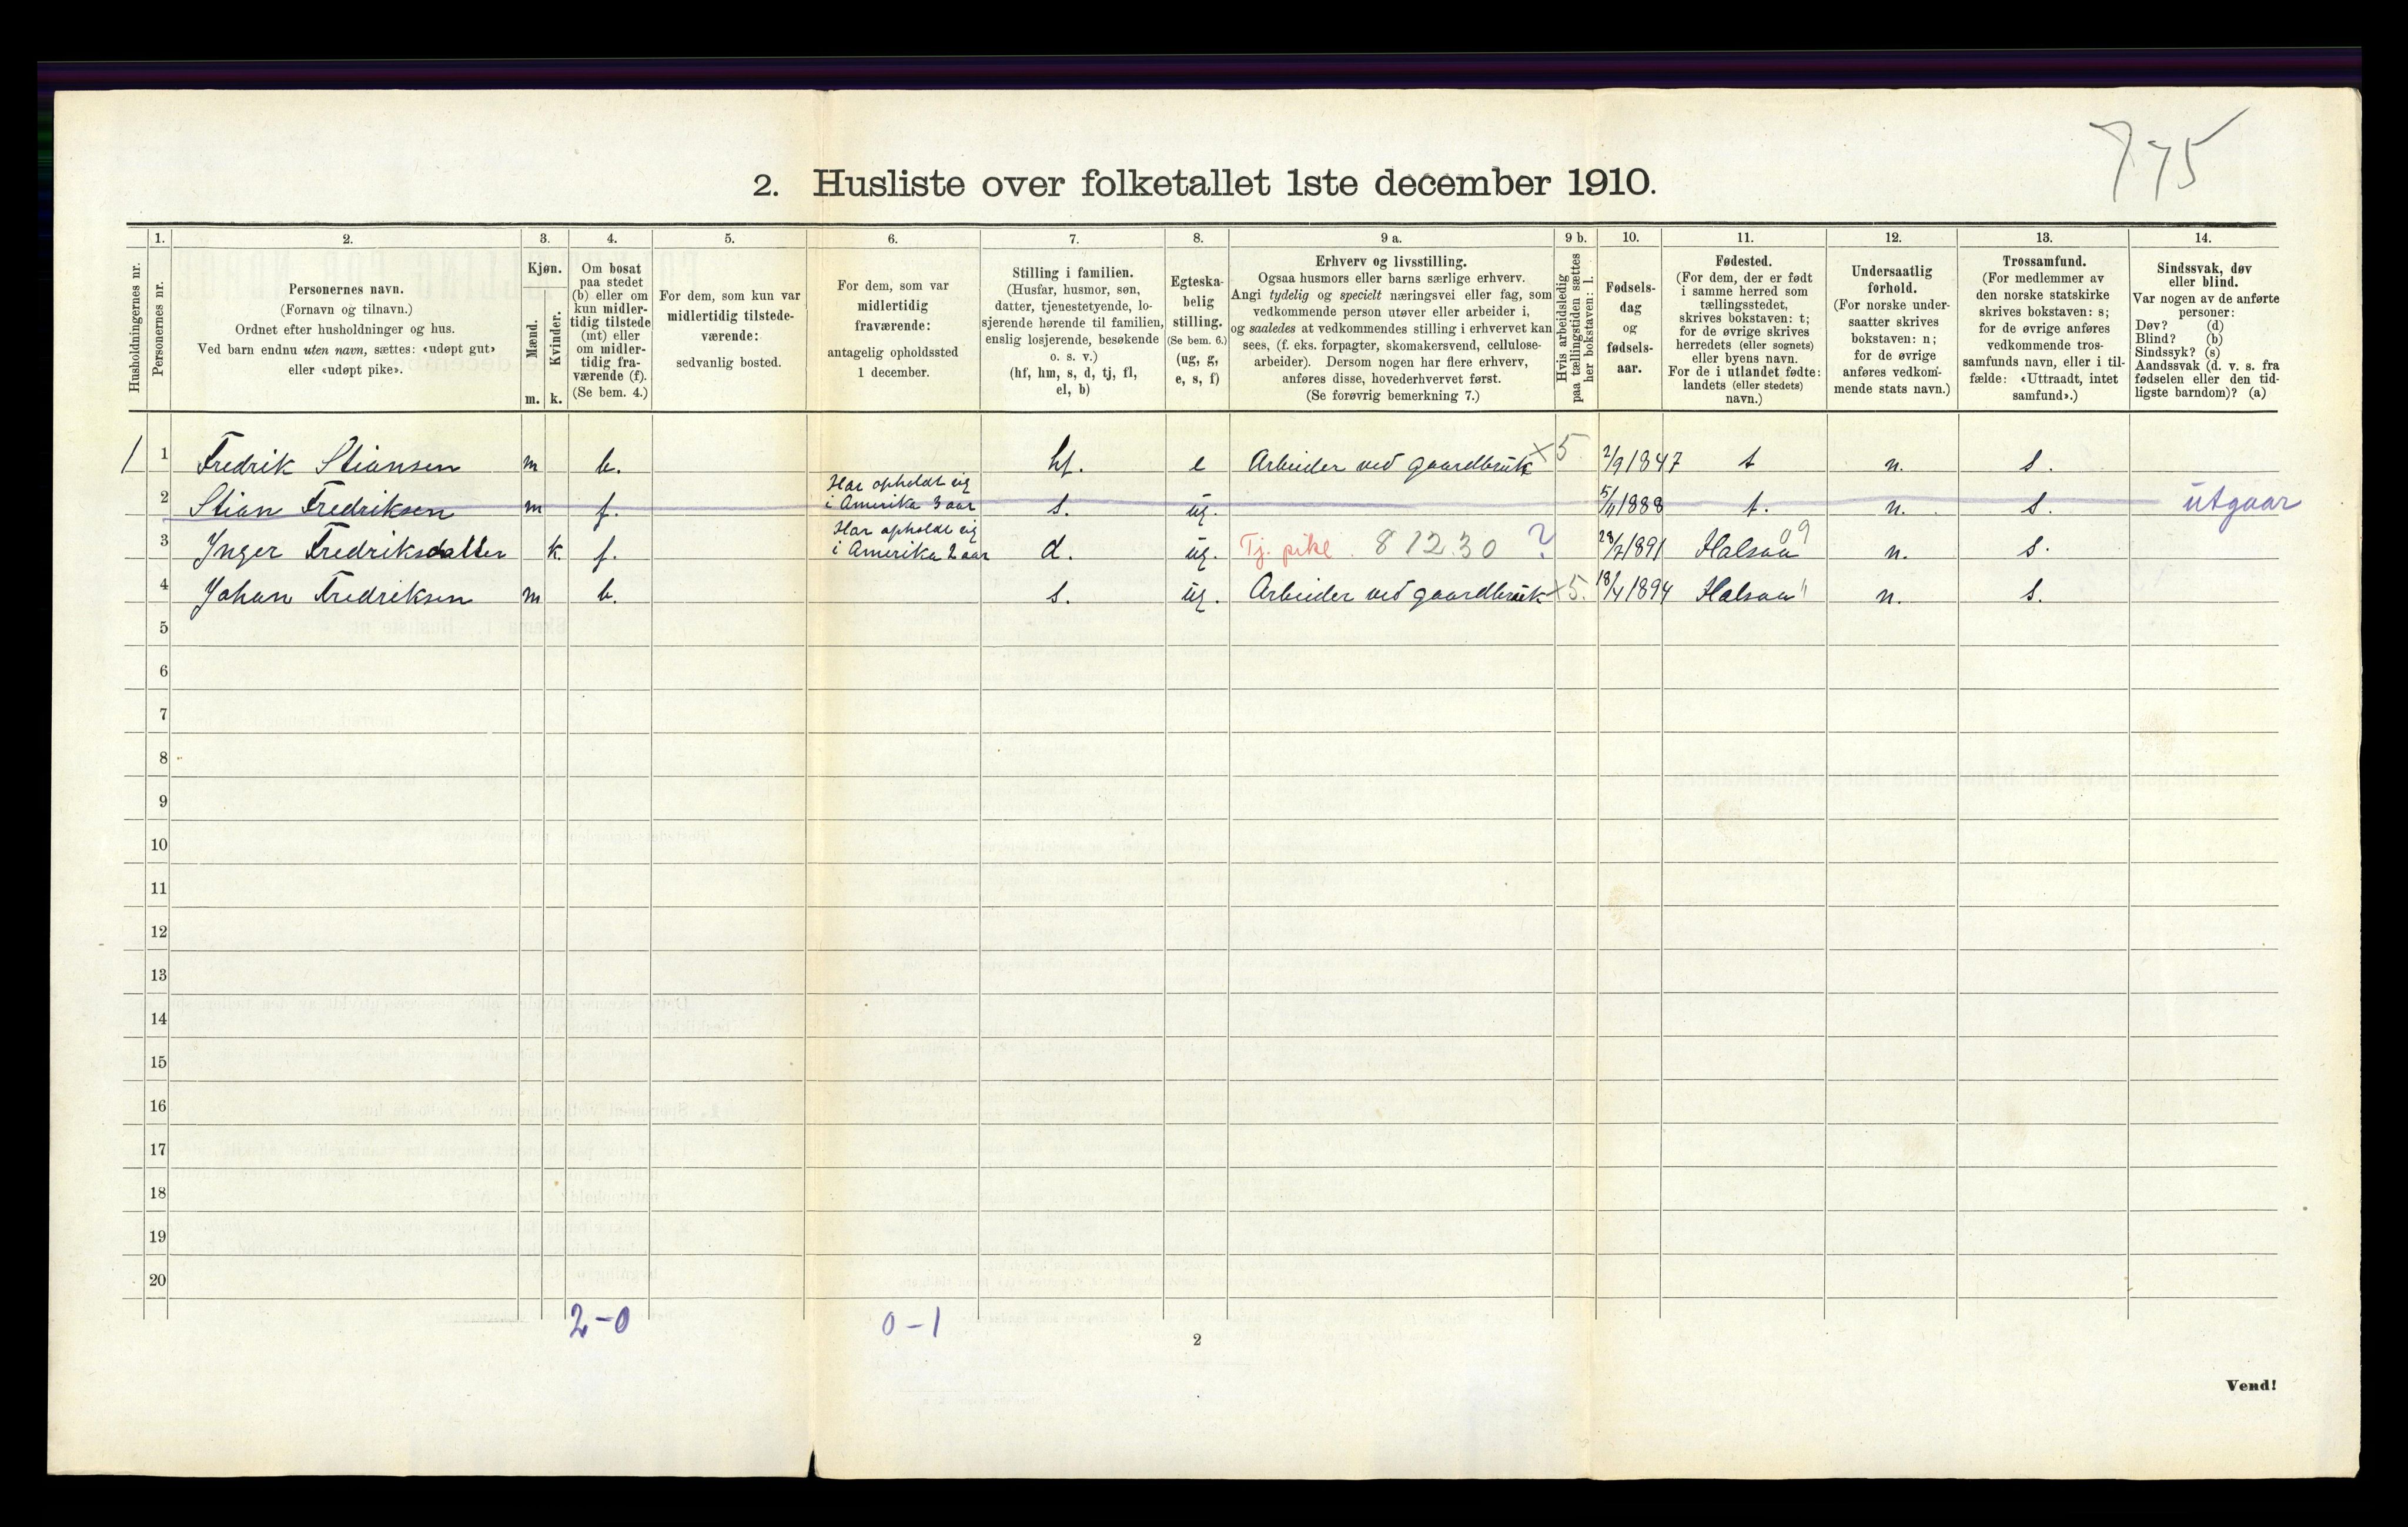 775
2. Husliste over folketallet 1ste december 1910.
Husholdningernes nr.
1.
Personernes nr.
2.
Personernes navn.
(Fornavn og tilnavn.)
Ordnet efter husholdninger og hus.
Ved barn endnu uten navn, sættes: «udøpt gut»
eller «udøpt pike».
3.
Kjøn.
Mænd.
Kvinder.
m. k.
4.
Om bosat
paa stedet
(b) eller om
kun midler-
tidig tilstede
(mt) eller
om midler-
tidig fra-
værende (f).
(Se bem. 4.)
5.
For dem, som kun var
midlertidig tilstede-
værende:
sedvanlig bosted.
6.
For dem, som var
midlertidig
fraværende:
antagelig opholdssted
1 december.
7.
Stilling i familien.
(Husfar, husmor, søn,
datter, tjenestetyende, lo-
sjerende hørende til familien,
enslig losjerende, besøkende
o. s. v.)
(hf, hm, s, d, tj, fl,
el, b)
8.
Egteska-
belig
stilling.
(Se bem. 6.)
(ug, g,
e, s, f)
9 a.
Erhverv og livsstilling.
Ogsaa husmors eller barns særlige erhverv.
Angi tydelig og specielt næringsvei eller fag, som
vedkommende person utøver eller arbeider i,
og saaledes at vedkommendes stilling i erhvervet kan
sees, (f. eks. forpagter, skomakersvend, cellulose-
arbeider). Dersom nogen har flere erhverv,
anføres disse, hovederhvervet først.
(Se forøvrig bemerkning 7.)
9 b.
Hvis arbeidsledig
paa tællingstiden sættes
her bokstaven: l.
10.
Fødsels-
dag
og
fødsels-
aar.
11.
Fødested.
(For dem, der er født
i samme herred som
tællingsstedet,
skrives bokstaven: t;
for de øvrige skrives
herredets (eller sognets)
eller byens navn.
For de i utlandet fødte:
landets (eller stedets)
navn.)
12.
Undersaatlig
forhold.
(For norske under-
saatter skrives
bokstaven: n;
for de øvrige
anføres vedkom-
mende stats navn.)
13.
Trossamfund.
(For medlemmer av
den norske statskirke
skrives bokstaven: s;
for de øvrige anføres
vedkommende tros-
samfunds navn, eller i til-
fælde: «Uttraadt, intet
samfund».)
14.
Sindssvak, døv
eller blind.
Var nogen av de anførte
personer:
Døv? (d)
Blind? (b)
Sindssyk? (s)
Aandssvak (d. v. s. fra
fødselen eller den tid-
ligste barndom)? (a)
1 1 Fredrik Stiansen m b. hf. e Arbeider ved gaardbruk ×5. 2/9 1847 t n. s.
2 Stian Fredriksen m f. Har opholdt sig i Amerika 3 aar s. ug. 5/11 1888 t. n. s. utgaar
3 Inger Fredriksdatter k. f. Har opholdt sig i Amerika 2 aar d. ug. Tj. pike. 8 12.30 ? 28/7 1891 Halsaa 09 n. s.
4 Johan Fredriksen m b. s. ug. Arbeider ved gaardbruk ×5. 18/4 1894 Halsaa " n. s.
5
6
7
8
9
10
11
12
13
14
15
16
17
18
19
20
2-0 0-1
2
Vend!